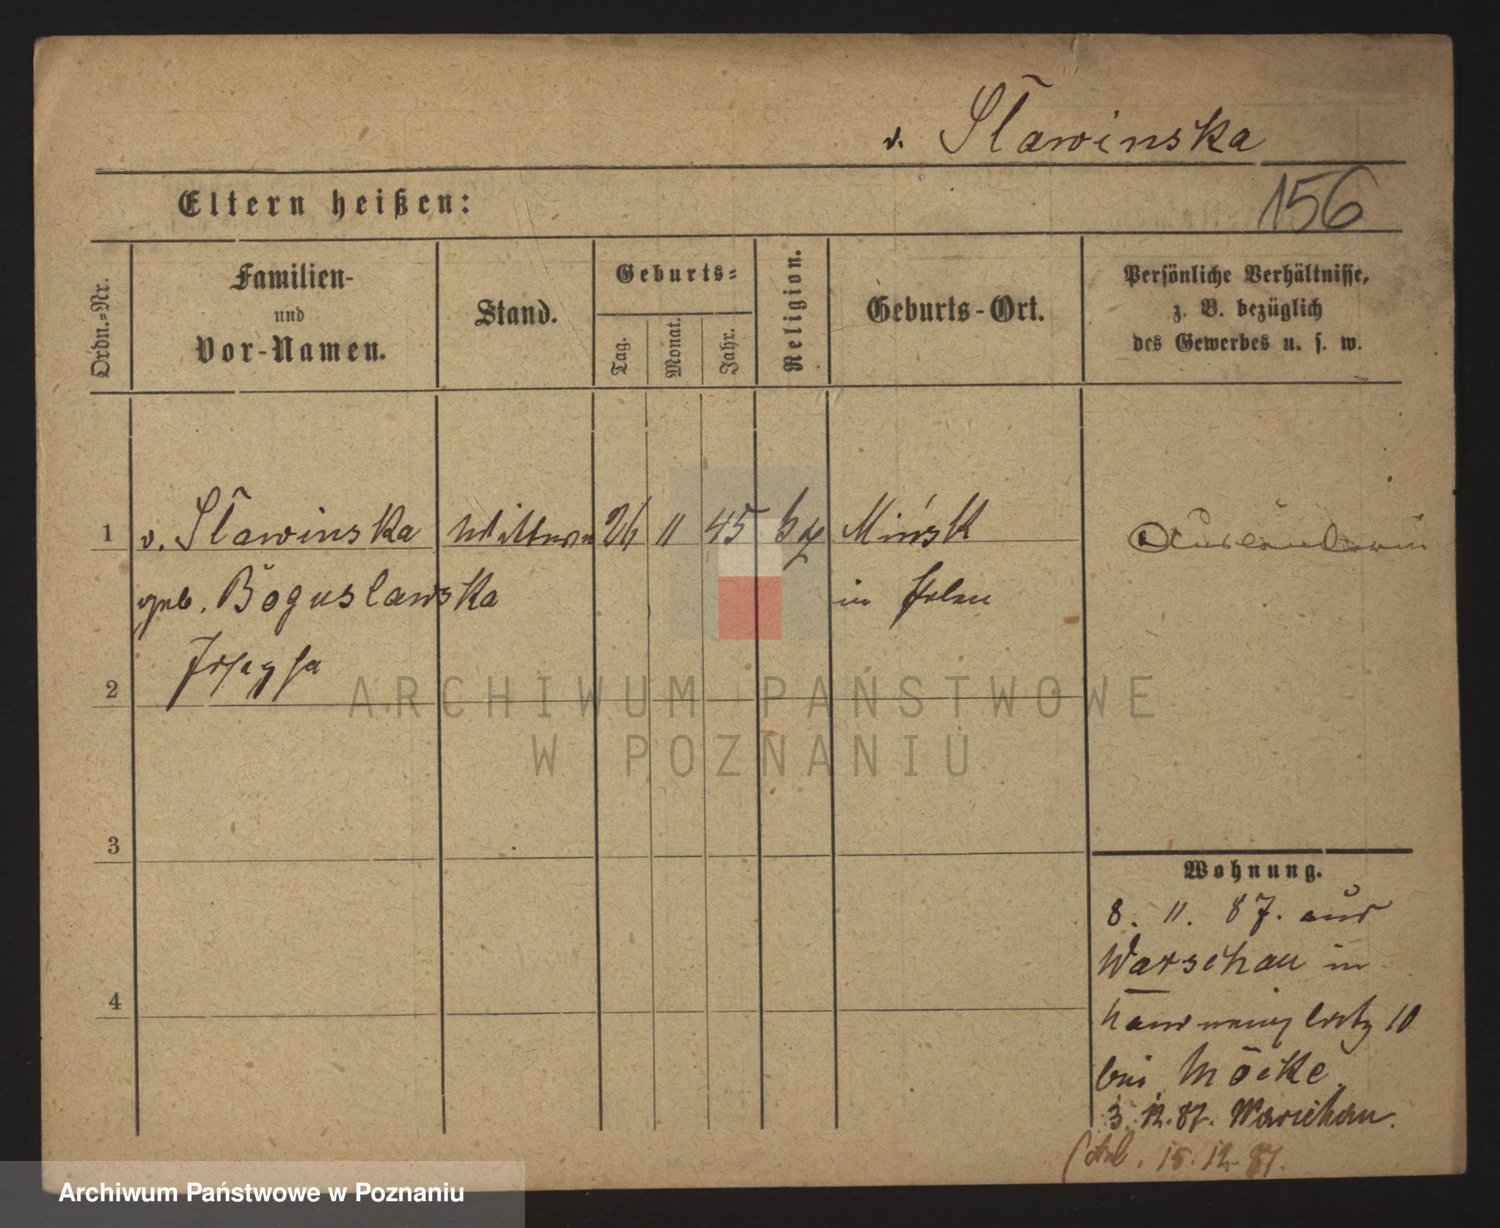 v. Sławinska
Eltern heißen:
156
Ordn.-Nr.
Familien-
und
Vor-Namen.
Stand.
Geburts-
Tag.
Monat.
Jahr.
Religion.
Geburts-Ort.
Persönliche Verhältnisse,
z. B. bezüglich
des Gewerbes u. s. w.
1 v. Sławinska Wittwe 26 11 45 Minsk Ausländerin
geb. Boguslawska in Polen
Josepha
2
ARCHIWUM PAŃSTWOWE
W POZNANIU
3
Wohnung.
8. 11. 87. aus
Warschau in
4
Hannemannplatz 10
bei Möcke
3. 12. 87. Warschau.
15. 12. 87.
Archiwum Państwowe w Poznaniu